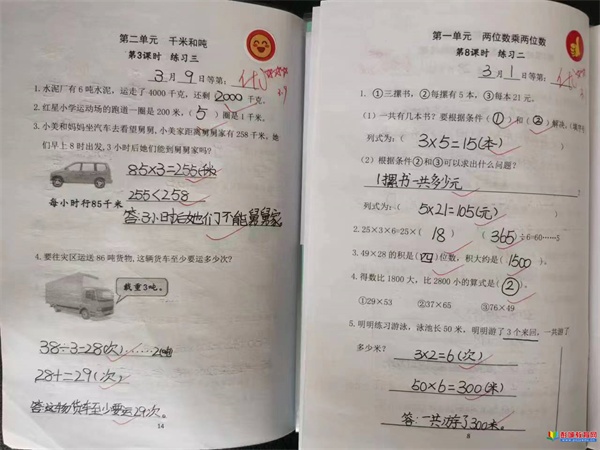 第二单元 千米和吨
第3课时 练习三
3月9日等第:
1.水泥厂有6吨水泥,运走了4000千克,还剩(2000)千克。
2.红星小学运动场的跑道一圈是200米,(5)圈是1千米。
3.小美和妈妈坐汽车去看望舅舅,小美家距离舅舅家有258千米,她
们早上8时出发,3小时后她们能到舅舅家吗?
85×3=255(千米)
255<258
每小时行85千米
答:3小时后她们不能舅舅家
4.要往灾区运送86吨货物,这辆货车至少要运多少次?
载重3吨。
38÷3=28(次)……2(吨)
28+=29(次)
答:这物货车至少要运29次。
14
第一单元 两位数乘两位数
第8课时 练习二
3月1日等第:
1.①三摞书,②每摞有5本,③每本21元。
(1)一共有几本书?要根据条件(①)和(②)解决,(填序号)
列式为:(3×5=15(本))
(2)根据条件②和③可以求出什么问题?
1摞书一共多少元
列式为:(5×21=105(元))
2.25×3×6=25×(18) (365)÷6=60……5
3.49×28的积是(四)位数,积大约是(1500)。
4.得数比1800大,比2800小的算式是(②)。
①29×53 ②37×65 ③76×49
5.明明练习游泳,泳池长50米,明明游了3个来回,一共游了
多少米?
3×2=6(次)
50×6=300(米)
答:一共游了300米。
8